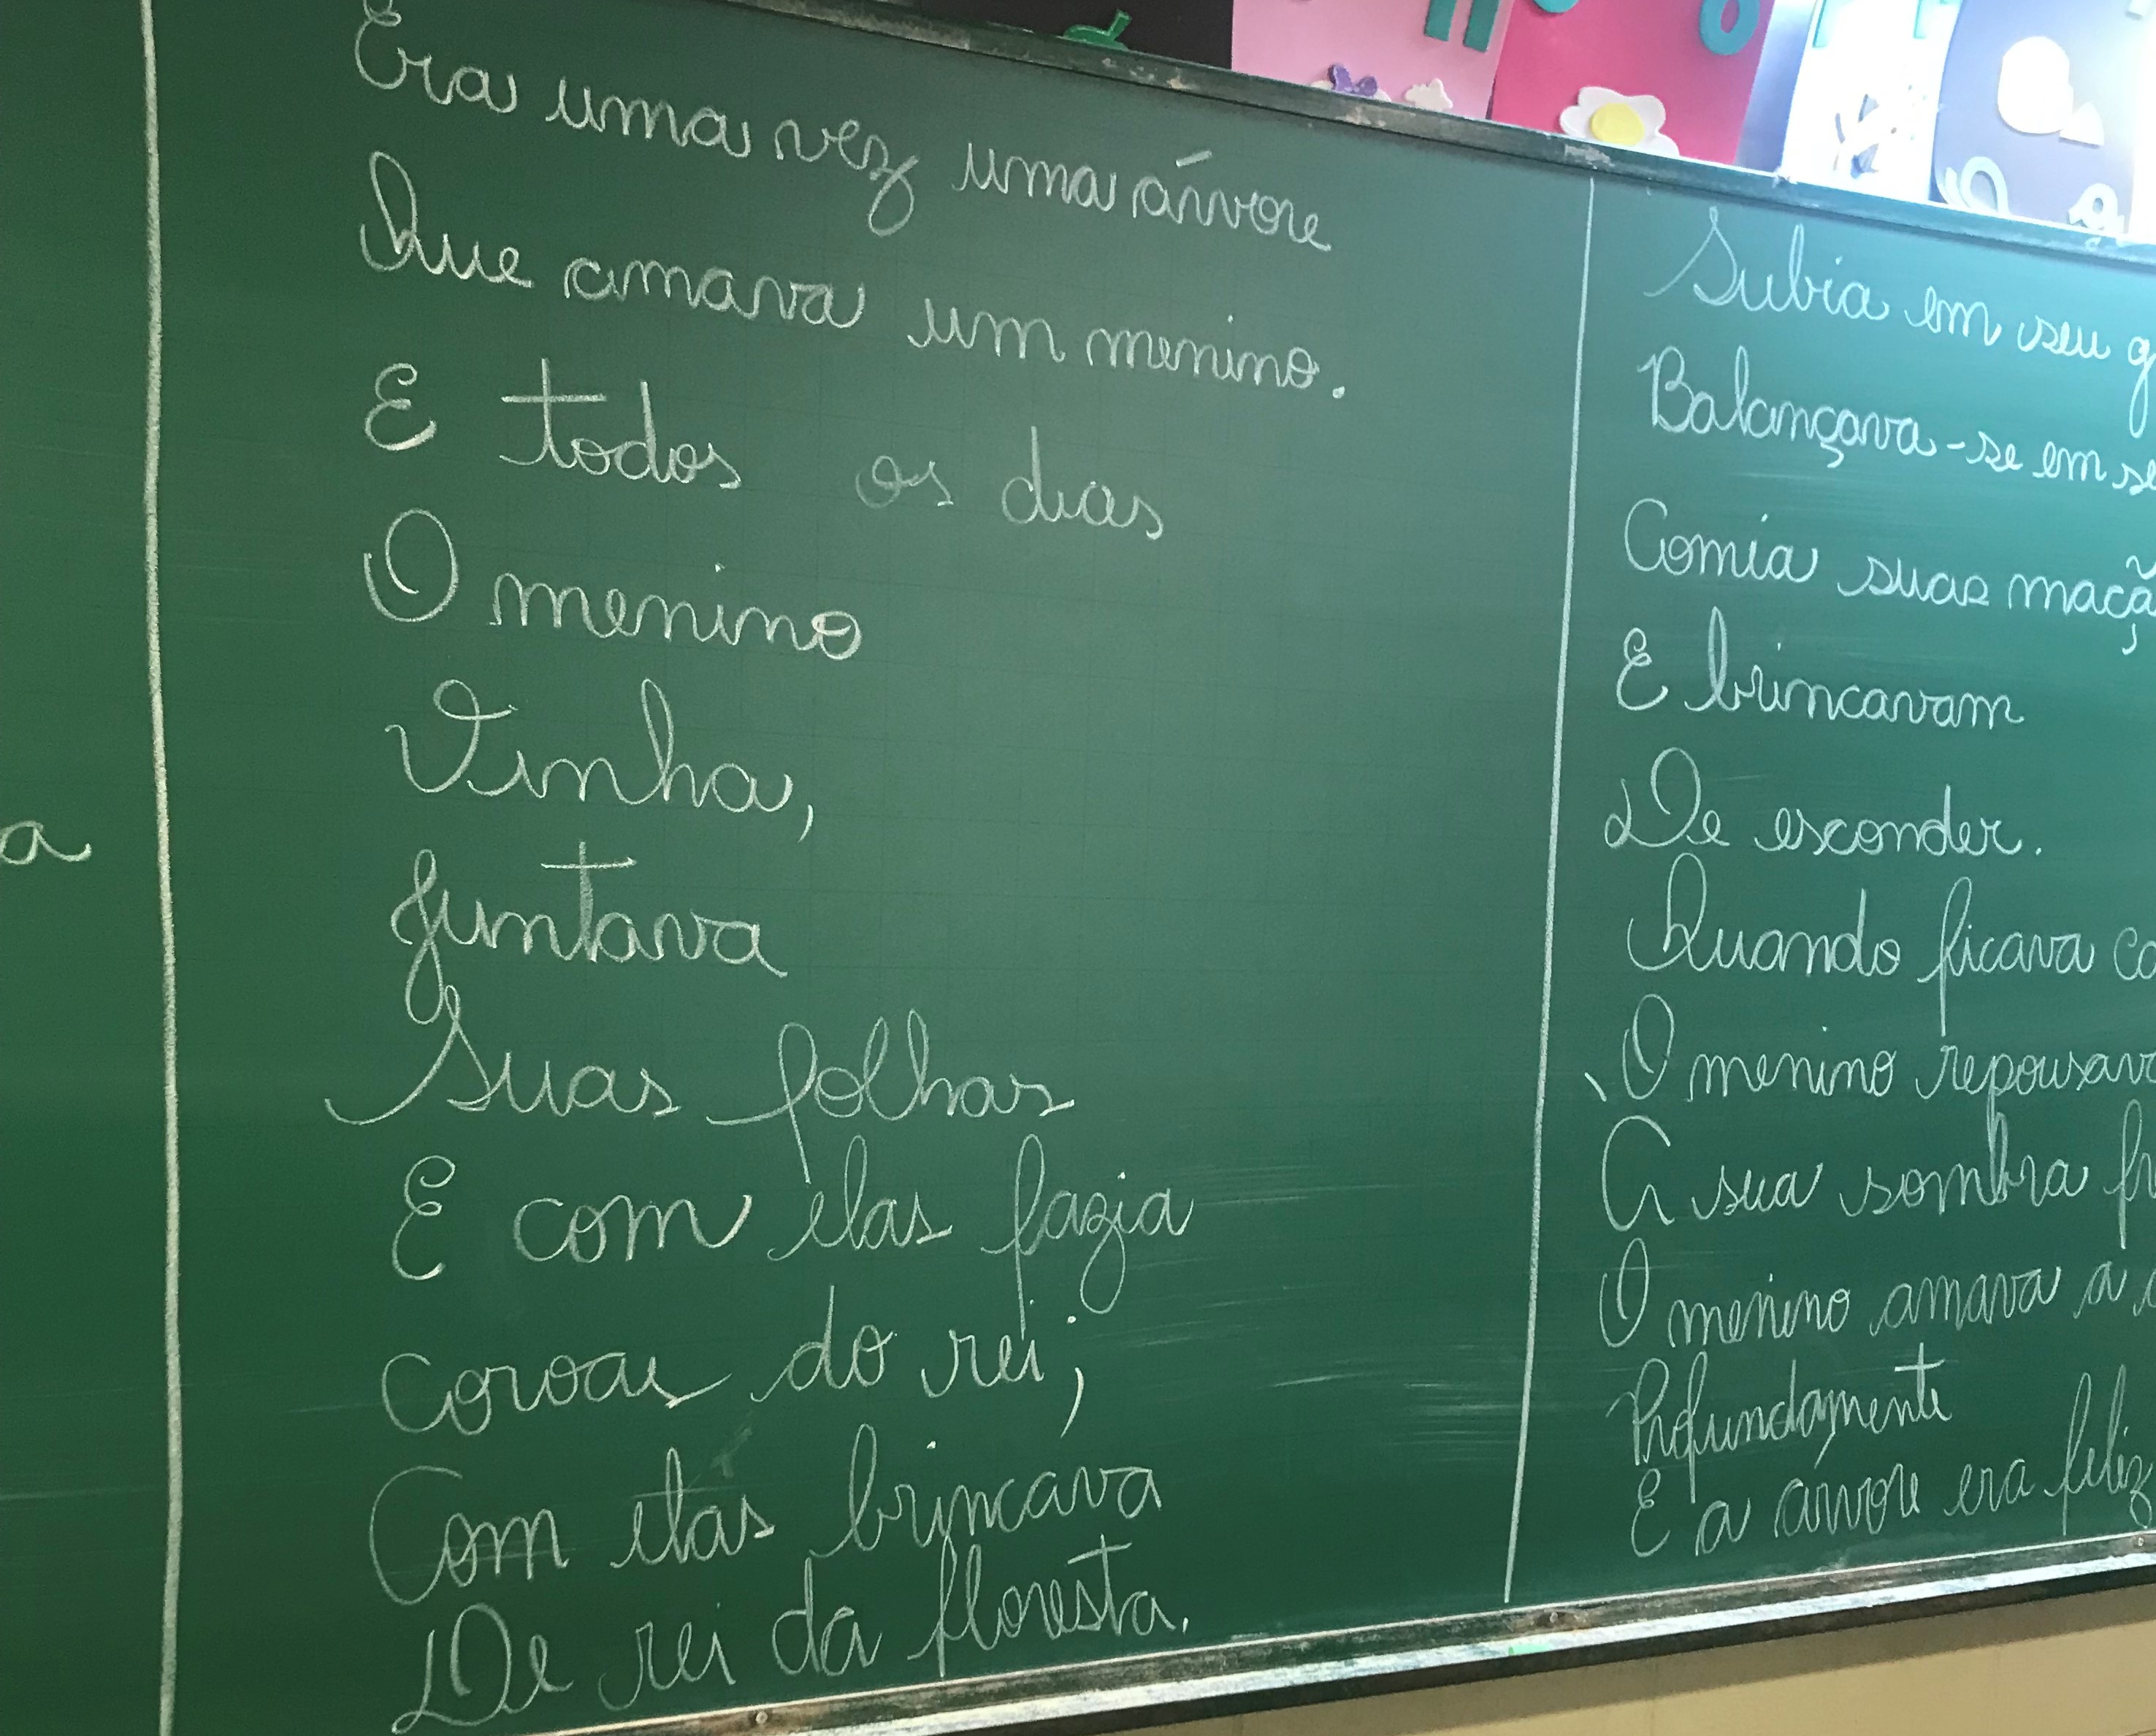 a
Era uma vez uma árvore
Que amava um menino.
E todos os dias
O menino
Vinha,
Juntava
Suas folhas
E com elas fazia
coroas do rei;
Com elas brincava
De rei da floresta.
Subia em seu g
Balançava-se em se
Comia suas maçã
E brincavam
De esconder.
Quando ficava ca
O menino repousava
A sua sombra fr
O menino amava a
Profundamente
E a árvore era feliz